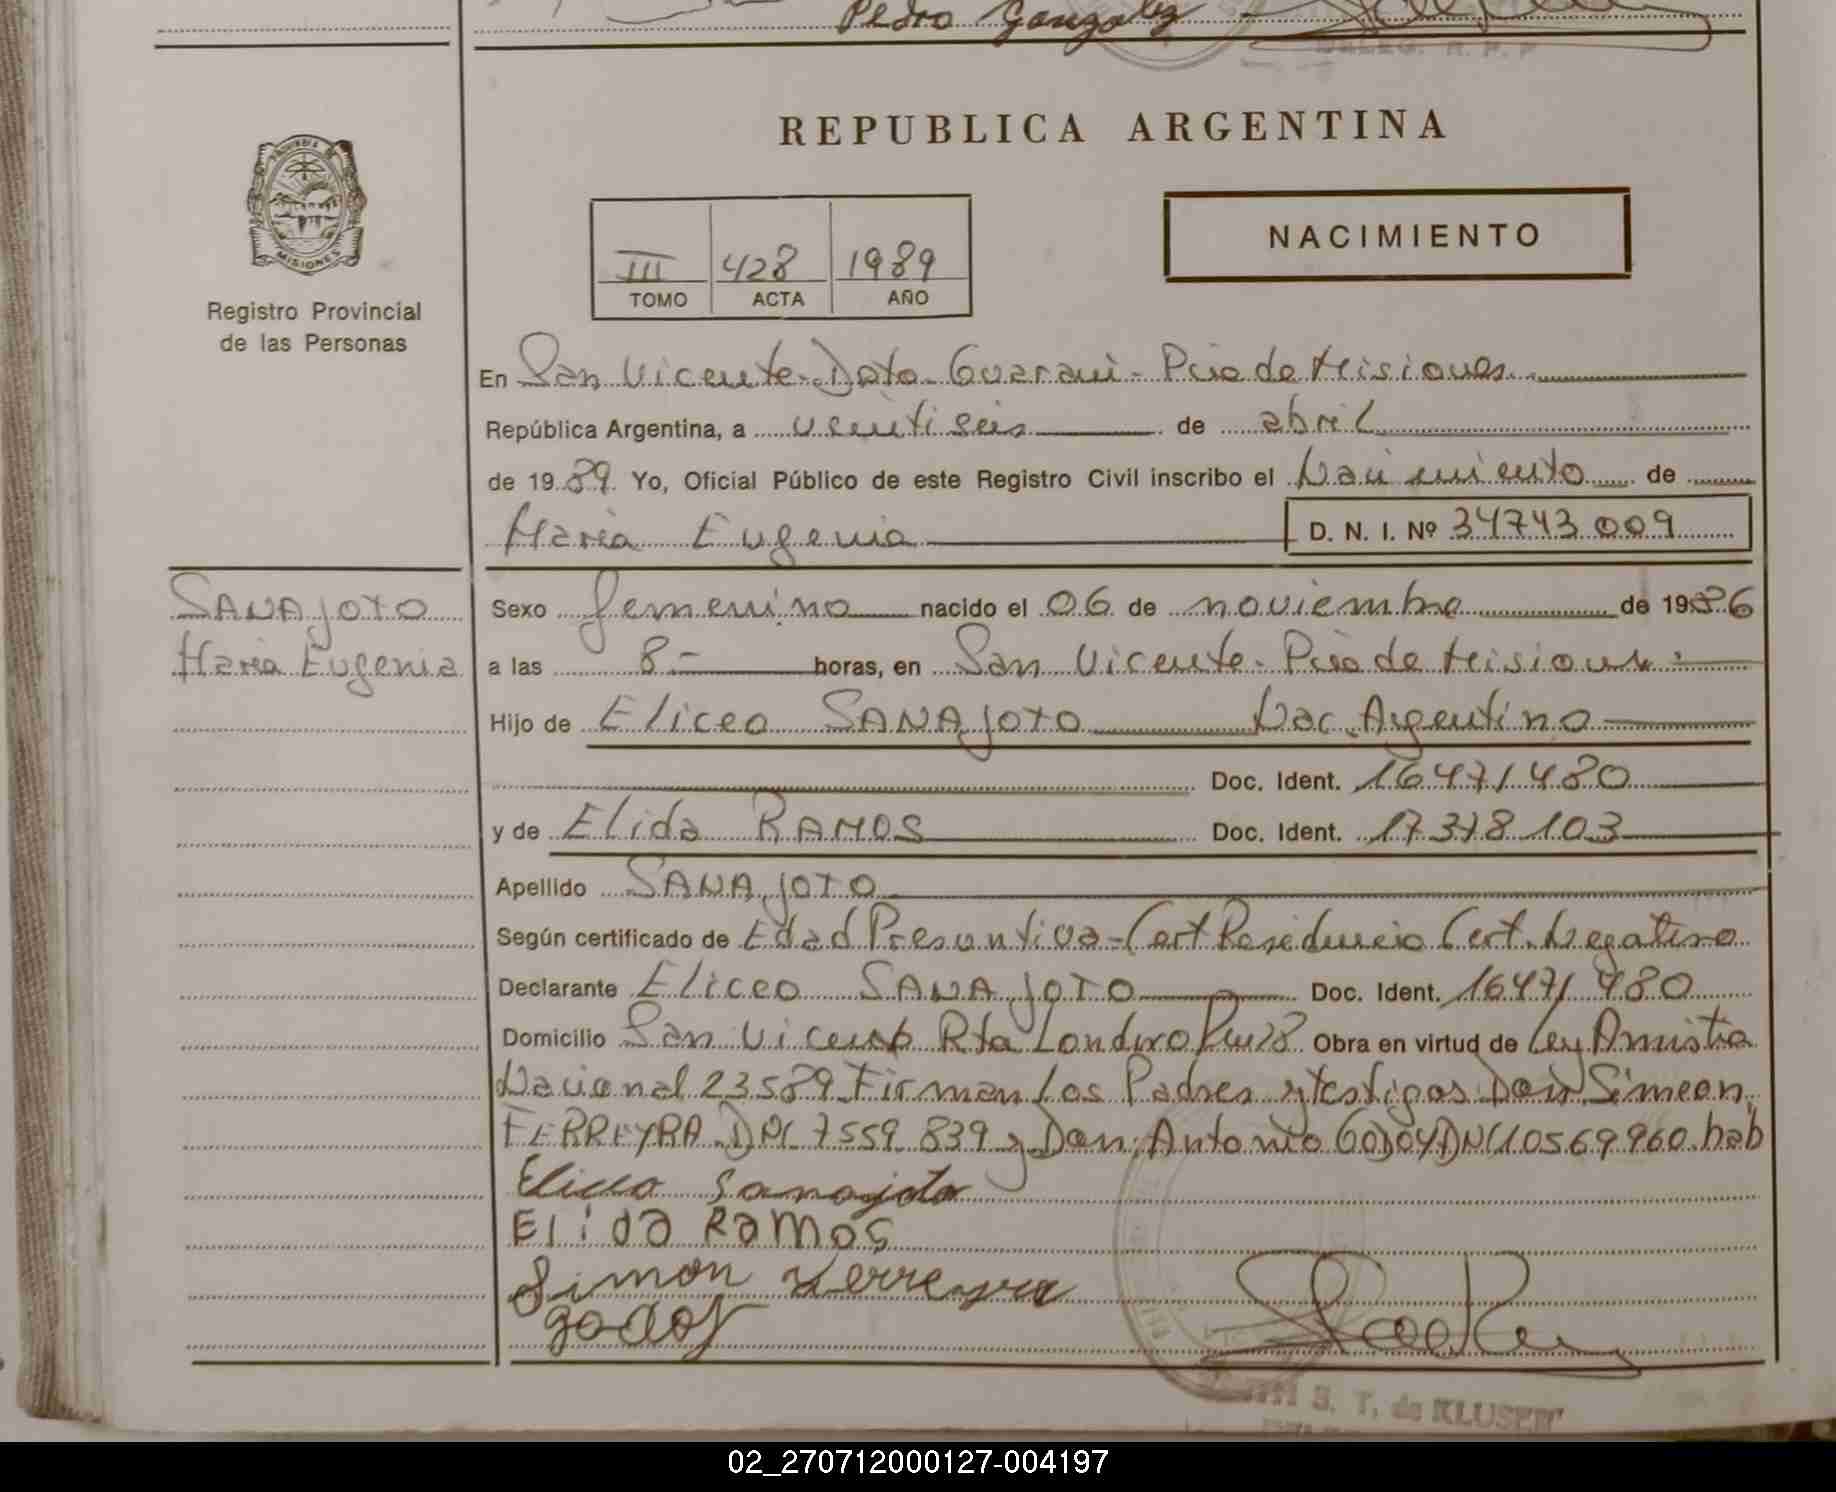 Pedro Gonzalez
DELEG. R. P. P
REPUBLICA ARGENTINA
PROVINCIA DE
MISIONES
NACIMIENTO
III 428 1989
TOMO ACTA AÑO
Registro Provincial
de las Personas
En San Vicente-Dpto-Guarani-Pcia de Misiones
República Argentina, a veintiseis de abril
de 1989 Yo, Oficial Público de este Registro Civil inscribo el Nacimiento de
Maria Eugenia D. N. I. Nº 34743.009
SANAJOTO
Maria Eugenia
Sexo femenino nacido el 06 de noviembre de 1986
a las 8.- horas, en San Vicente-Pcia de Misiones
Hijo de Eliceo SANAJOTO Nac. Argentino
Doc. Ident. 16471480
y de Elida RAMOS Doc. Ident. 17318103
Apellido SANAJOTO
Según certificado de Edad Presuntiva-Cert Residencia Cert. Negativo
Declarante Eliceo SANAJOTO Doc. Ident. 16471480
Domicilio San Vicente Rta Londero Obra en virtud de Ley Amistia
Nacional 23589 Firman los Padres y testigos Don Simeon
FERREYRA DNI 7559839 y Don Antonio GODOY DNI 10569960 hab
Eliceo Sanajoto
Elida Ramos
Simon Ferreyra
godoy
S. T. de KLUSEN
02_270712000127-004197